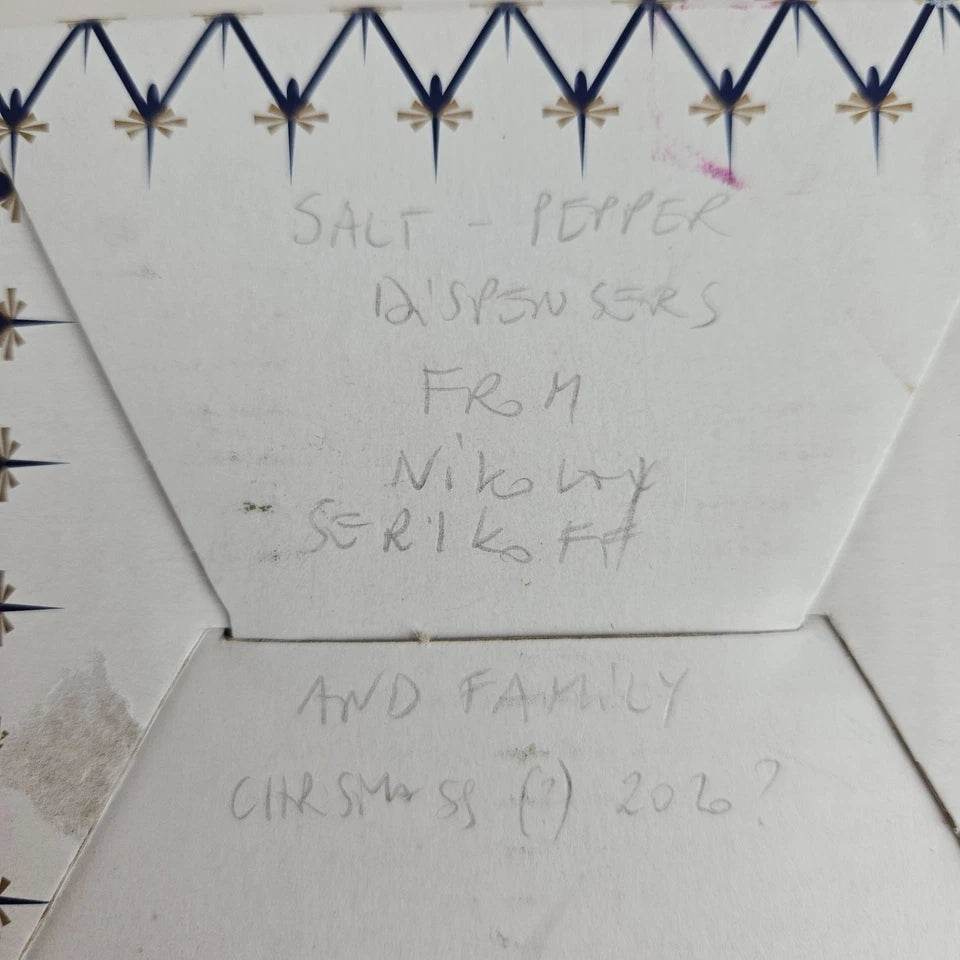 SALT - PEPPER
DISPENSERS
FROM
NiKOLAY
SERIKOFF
AND FAMILY
CHRSMASS (?) 2020?